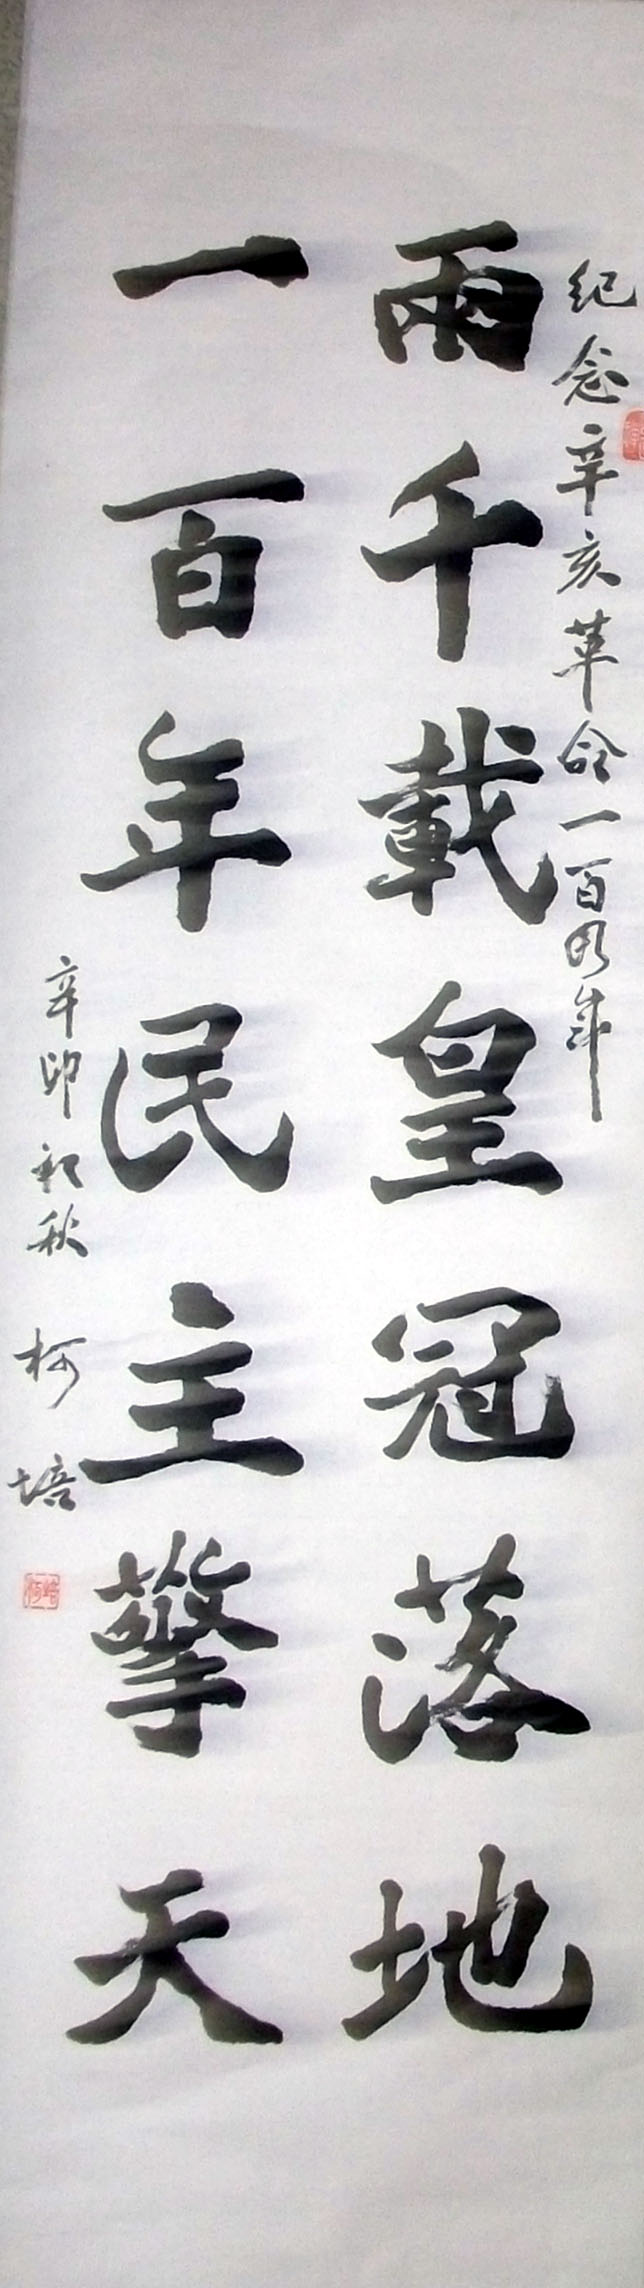 纪念辛亥革命一百周年
兩千載皇冠落地
一百年民主擎天
辛卯初秋 柯培